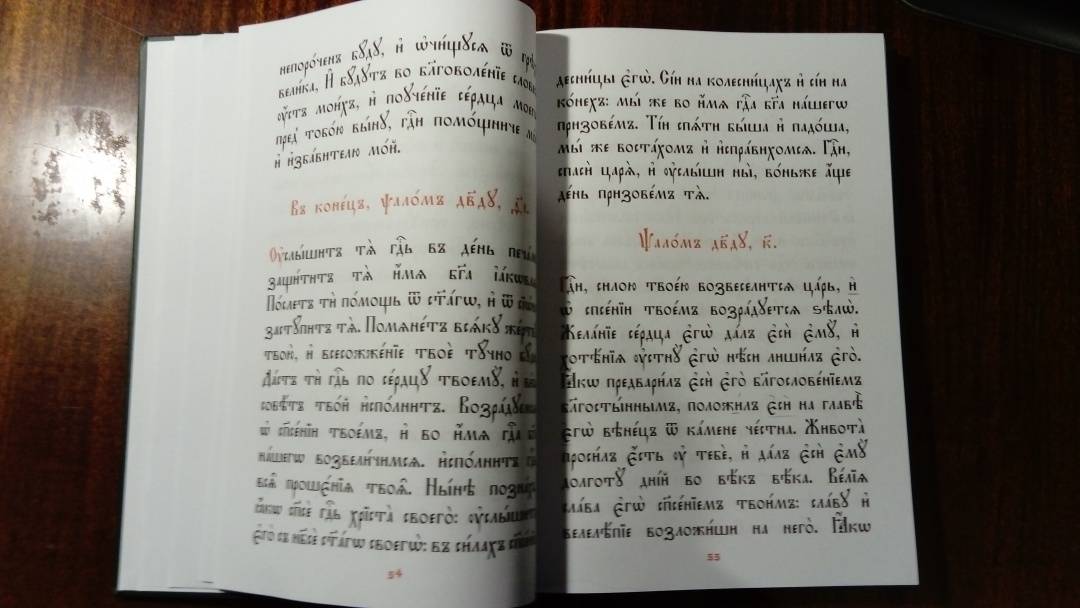 непоро́ченъ бꙋ́дꙋ, и҆ ѡ҆чи́щꙋсѧ ѿ
вели́ка, И҆ бꙋ́дꙋтъ во бл҃говоле́нїе
ᲂу҆́стъ мои́хъ, и҆ поꙋче́нїе се́рдца
пред̾ тобо́ю вы́нꙋ, гдⷭ҇и помо́щниче
и҆ и҆зба́вителю мо́й.
Въ коне́цъ, ѱало́мъ дв҃дꙋ,
Оу҆слы́шитъ тѧ̀ гдⷭ҇ь въ де́нь
защи́титъ тѧ̀ и҆́мѧ бг҃а
По́слетъ тѝ по́мощь ѿ ст҃а́гѡ, и҆ ѿ
застꙋ́питъ тѧ̀. Помѧне́тъ всѧ́кꙋ
твою̀, и҆ всесожже́нїе твоѐ тꙋ́чно
Да́стъ тѝ гдⷭ҇ь по се́рдцꙋ твоемꙋ̀, и҆
совѣ́тъ тво́й и҆спо́лнитъ.
ѡ҆ сп҃се́нїи твое́мъ, и҆ во и҆́мѧ гдⷭ҇а
на́шегѡ возвели́чимсѧ. и҆спо́лнитъ
всѧ̑ проше́нїѧ твоѧ̑. Ны́нѣ
ꙗ҆́кѡ сп҃сѐ гдⷭ҇ь хрїста̀ своего̀:
є҆го̀ съ нб҃сѐ ст҃а́гѡ своегѡ̀: въ си́лахъ
54
десни́цы є҆гѡ̀. Сі́и на колесни́цахъ и҆ сі́и на
ко́нехъ: мы́ же во и҆́мѧ гдⷭ҇а бг҃а на́шегѡ
призове́мъ. Ті́и спѧ́ти бы́ша и҆ падо́ша,
мы́ же воста́хомъ и҆ и҆спра́вихомсѧ. Гдⷭ҇и,
спасѝ царѧ̀, и҆ ᲂу҆слы́ши ны̀, во́ньже а҆́ще
де́нь призове́мъ тѧ̀.
Ѱало́мъ дв҃дꙋ, к҃.
Гдⷭ҇и, си́лою твое́ю возвесели́тсѧ ца́рь, и҆
ѡ҆ сп҃се́нїи твое́мъ возра́дꙋетсѧ ѕѣлѡ̀.
Жела́нїе се́рдца є҆гѡ̀ да́лъ є҆сѝ є҆мꙋ̀, и҆
хотѣ́нїѧ ᲂу҆стнꙋ̀ є҆гѡ̀ нѣ́си лиши́лъ є҆го̀.
Ꙗ҆́кѡ предвари́лъ є҆сѝ є҆го̀ бл҃гослове́нїемъ
бл҃госты́ннымъ, положи́лъ є҆сѝ на главѣ̀
є҆гѡ̀ вѣне́цъ ѿ ка́мене че́стна. Живота̀
проси́лъ є҆́сть ᲂу҆ тебѐ, и҆ да́лъ є҆сѝ є҆мꙋ̀
долготꙋ̀ дні́й во вѣ́къ вѣ́ка. Ве́лїѧ
сла́ва є҆гѡ̀ сп҃се́нїемъ твои́мъ: сла́вꙋ и҆
велелѣ́пїе возложи́ши на него̀. Ꙗ҆́кѡ
55